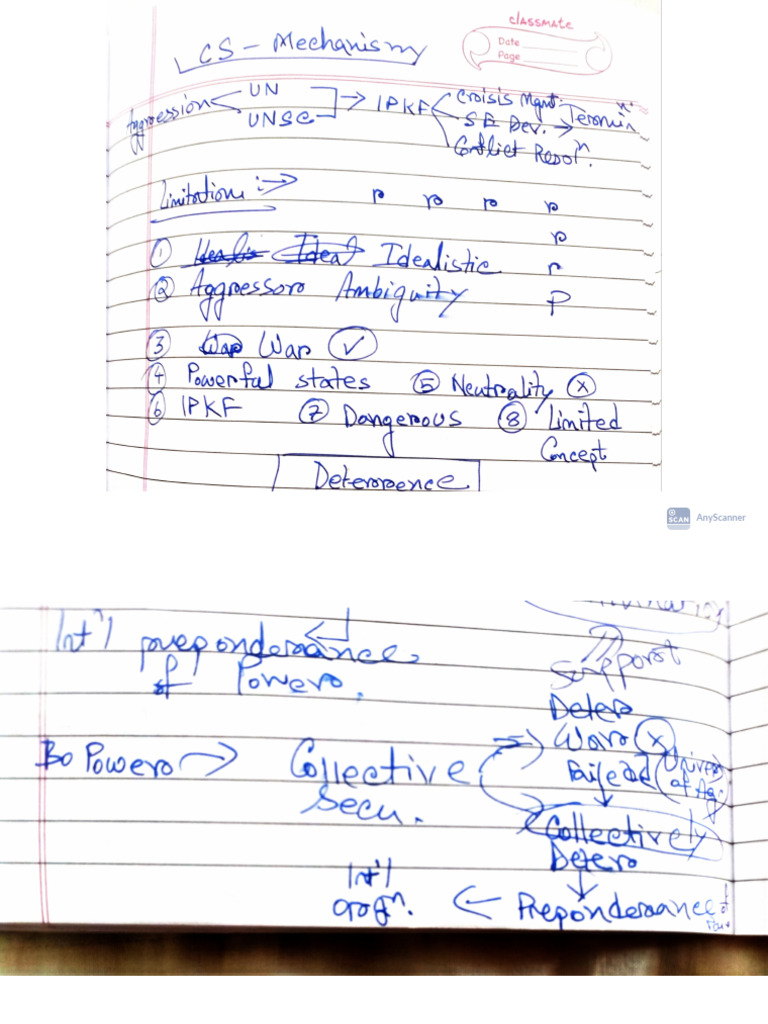 classmate
Date
Page
CS - Mechanism
Aggression UN UNSC → IPKF Crisis Mgmt.
SE Dev. → Termin^n.
Conflict Resol^n.
Limitation :→
① Idealistic
② Aggressor Ambiguity P
③ War ✓
④ Powerful states ⑤ Neutrality ⓧ
⑥ IPKF ⑦ Dangerous ⑧ Limited
Concept
Deterrence
SCAN AnyScanner
Int'l preponderance
of Power.
Support
Deter
Bo Power → Collective Secu. ⇒ War ⓧ
Failed
Collectively
Deter
Int'l orgn. ← Preponderance of